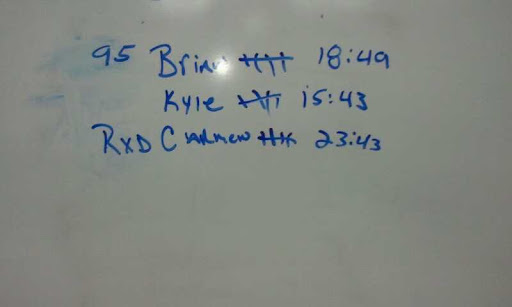 95 Brian 18:49
Kyle 15:43
RXD Carmen 23:43